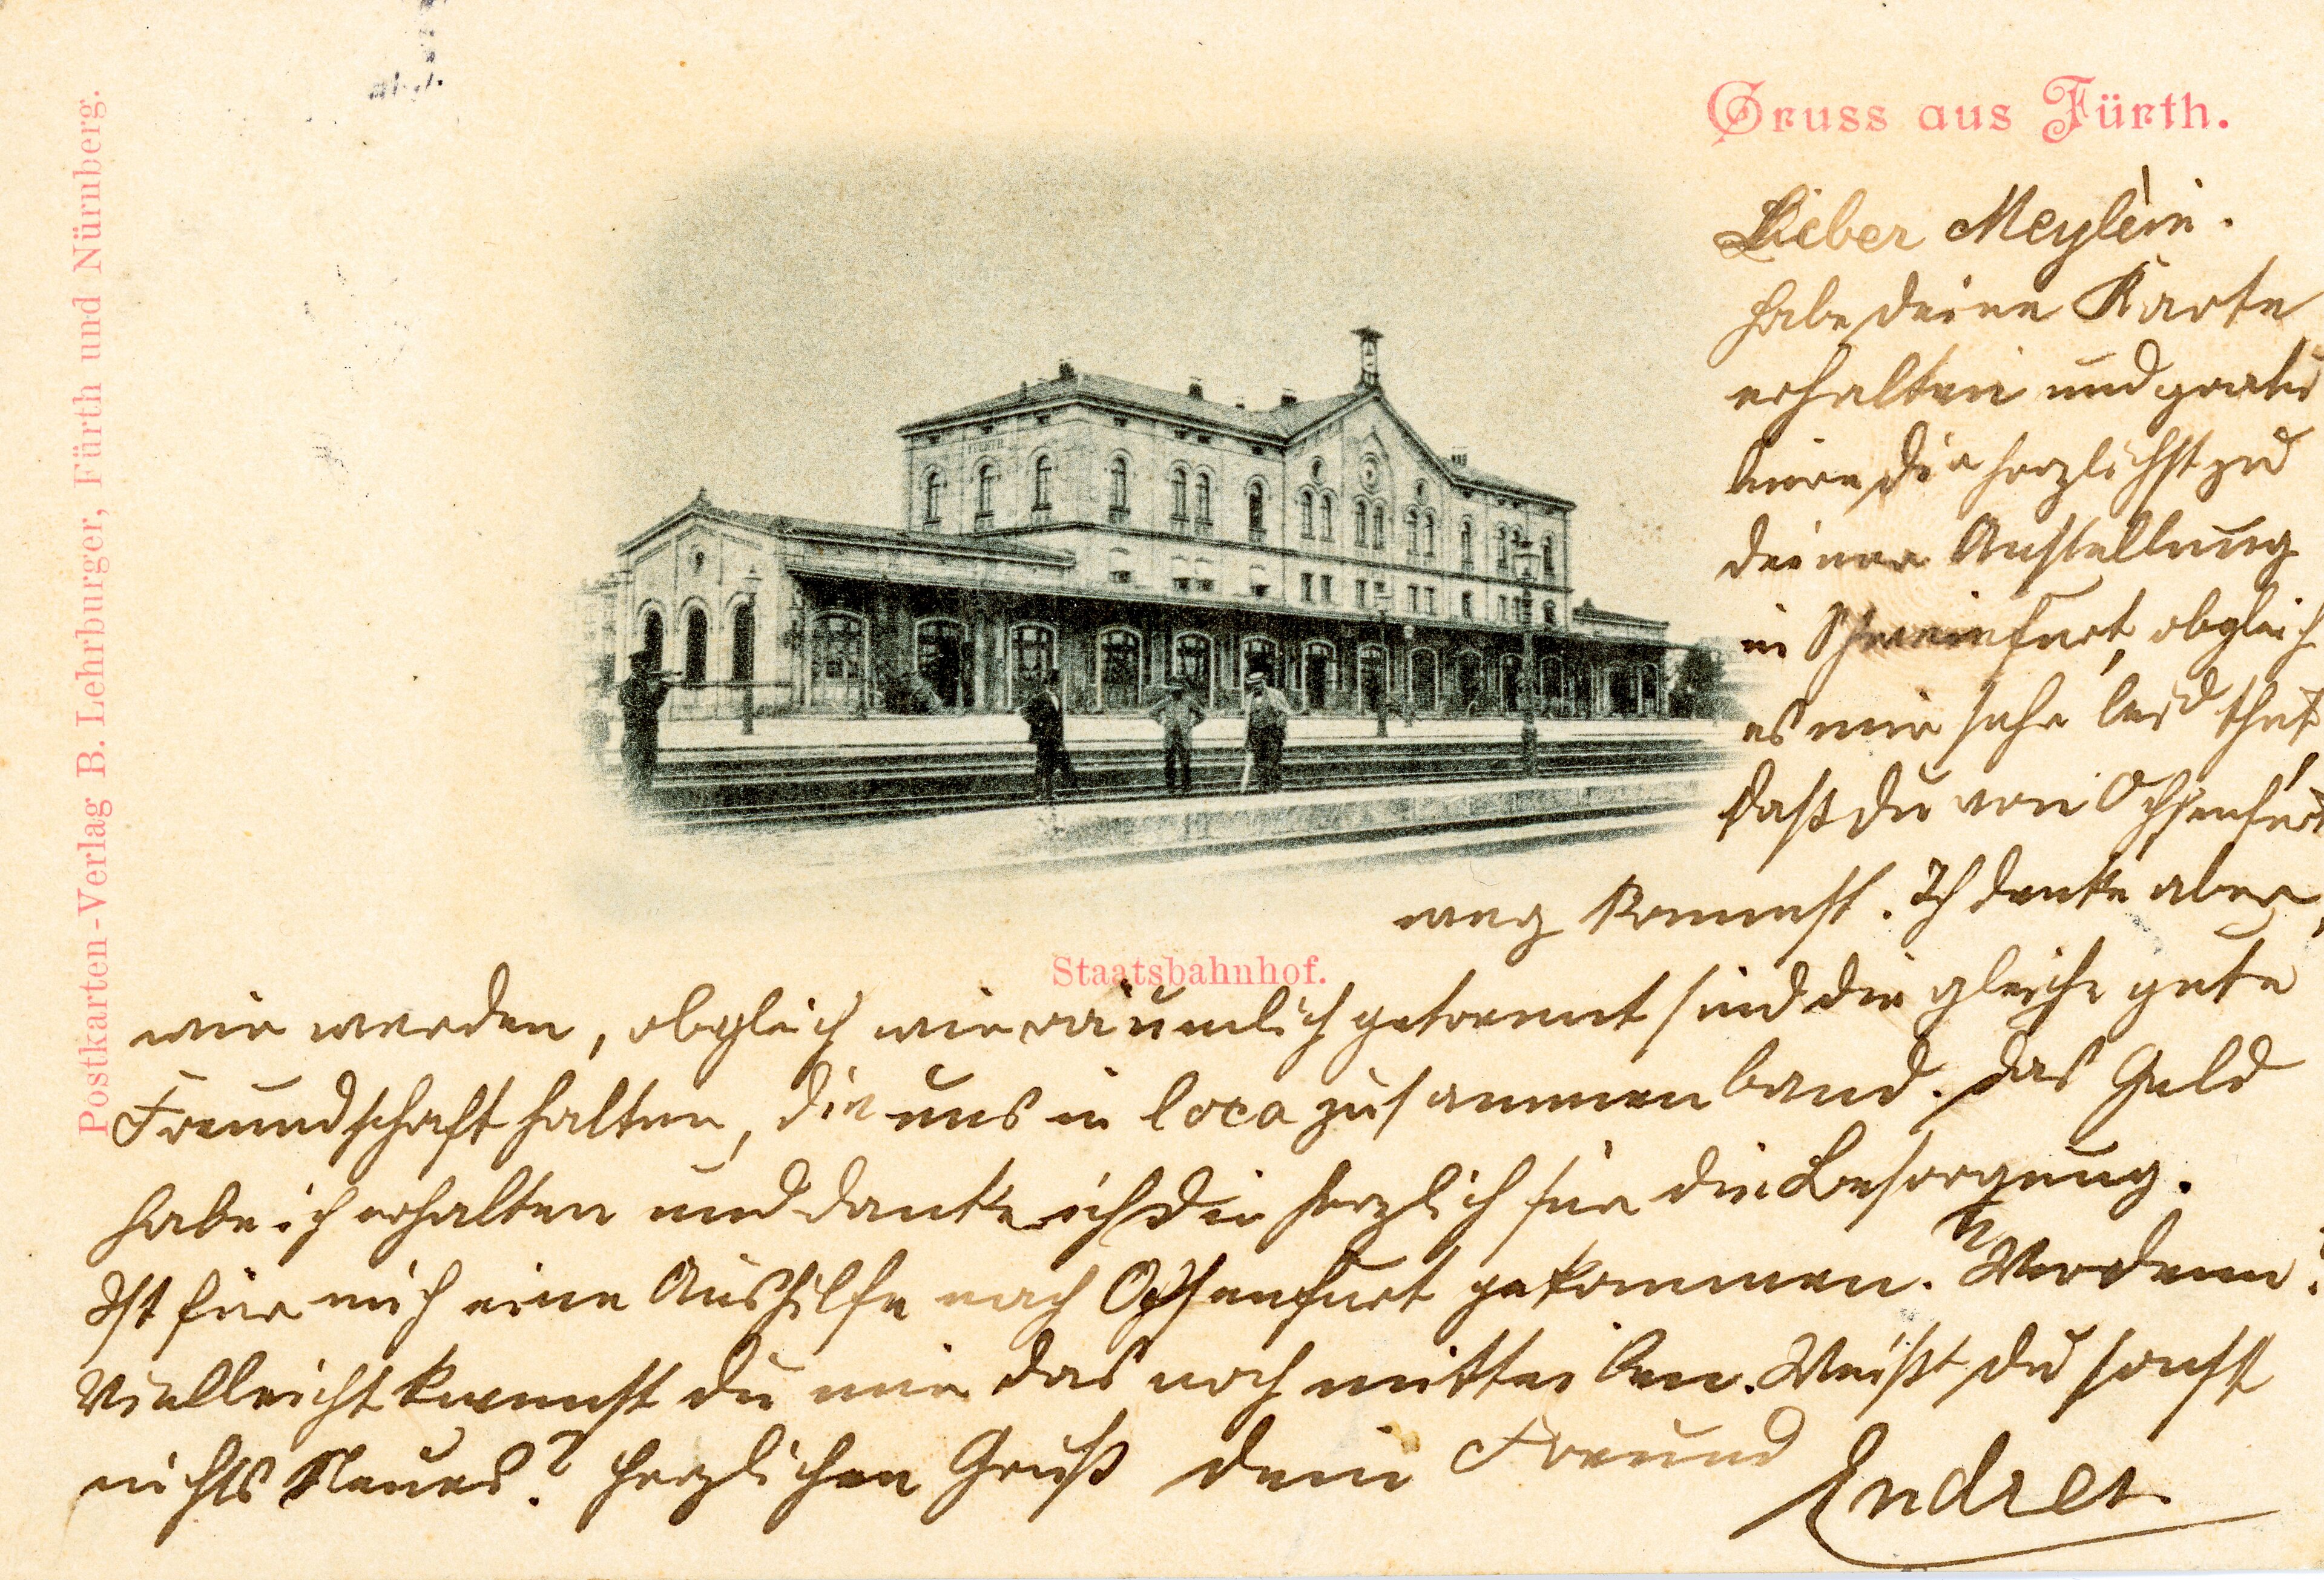 Gruss aus Fürth.
Lieber Meylein.
Habe deine Karte
erhalten und gratu
liere dir herzlichst zu
deiner Anstellung
in Schweinfurt, obgleich
es mir sehr leid thut,
daß du von Ochsenfurt
weg kommst. Ich denke aber,
Staatsbahnhof.
wir werden, obgleich wir räumlich getrennt sind die gleiche gute
Freundschaft halten, die uns in loco zusammen band. Das Geld
habe ich erhalten und danke ich dir herzlich für die Besorgung.
Ist für mich eine Aushilfe nach Ochsenfurt gekommen. Wer denn?
Vielleicht kannst du mir das noch mitteilen. Weißt du sonst
nichts Neues? Herzlichen Gruß dein Freund
Endres
Postkarten-Verlag B. Lehrburger, Fürth und Nürnberg.
FUERTH